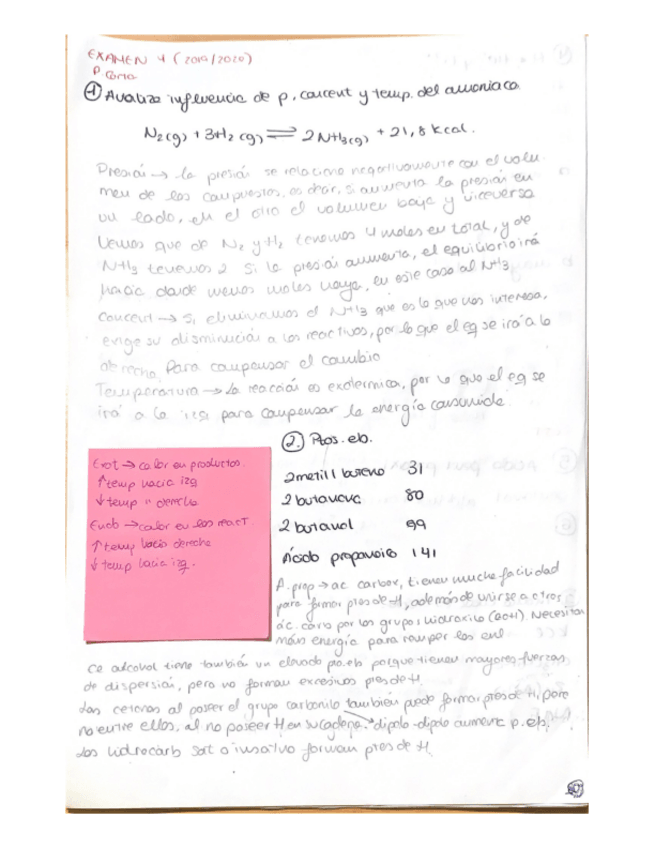 EXAMEN 4 (2019/2020)
P Corta
① Analiza influencia de p, concent y temp. del amoniaco
N2(g) + 3H2(g) ⇌ 2NH3(g) + 21,8 kcal.
Presión → la presión se relaciona negativamente con el volu-
men de los compuestos, es decir, si aumenta la presión en
un lado, en el otro el volumen baja y viceversa
Vemos que de N2 y H2 tenemos 4 moles en total, y de
NH3 tenemos 2 Si la presión aumenta, el equilibrio irá
hacia donde menos moles haya, en este caso al NH3
Concent → Si eliminamos el NH3 que es lo que nos interesa,
exige su disminución a los reactivos, por lo que el eq se irá a la
derecha para compensar el cambio
Temperatura → La reacción es exotermica, por lo que el eq se
irá a la izq para compensar la energía consumida
② Ptos. eb.
Exot → calor en productos.
↑ temp hacia izq
↓ temp " derecha
Endo → calor en los react.
↑ temp hacia derecha
↓ temp hacia izq.
2metil 1 buteno 31
2 butanona 80
2 butanol 99
Ácido propanoico 141
A. prop → ac carbox, tienen mucha facilidad
para formar ptes de H, además de unirse a otros
ác. carb por los grupos hidroxilo (OH). Necesitan
más energía para romper los enl
alcohol tiene también un elevado pto. eb porque tienen mayores fuerzas
de dispersión, pero no forman excesivos ptes de H.
Las cetonas al poseer el grupo carbonilo también puede formar ptes de H, pero
no entre ellos, al no poseer H en su cadena. → dipolo-dipolo aumenta p. eb.
Los hidrocarb sat o insat no forman ptes de H.